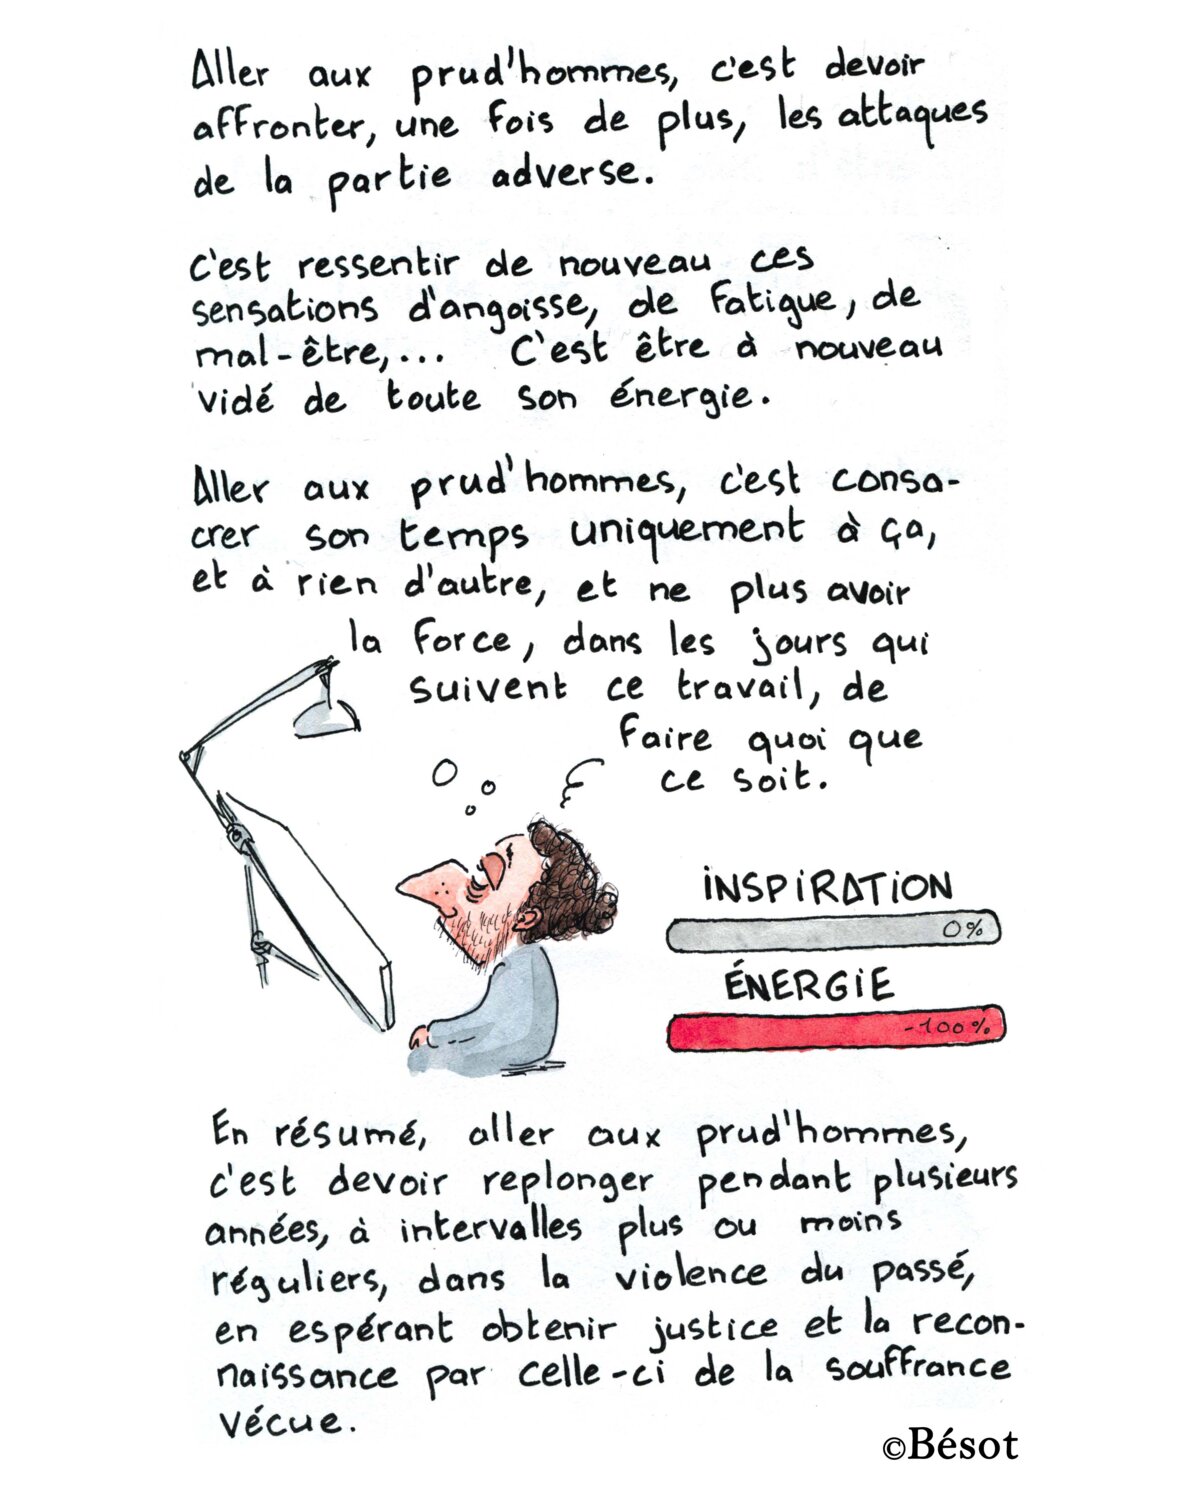 Aller aux prud'hommes, c'est devoir
affronter, une fois de plus, les attaques
de la partie adverse.
C'est ressentir de nouveau ces
sensations d'angoisse, de fatigue, de
mal-être,... C'est être à nouveau
vidé de toute son énergie.
Aller aux prud'hommes, c'est consa-
crer son temps uniquement à ça,
et à rien d'autre, et ne plus avoir
la force, dans les jours qui
suivent ce travail, de
faire quoi que
ce soit.
INSPIRATION
0%
ÉNERGIE
-100%
En résumé, aller aux prud'hommes,
c'est devoir replonger pendant plusieurs
années, à intervalles plus ou moins
réguliers, dans la violence du passé,
en espérant obtenir justice et la recon-
naissance par celle-ci de la souffrance
vécue.
©Bésot